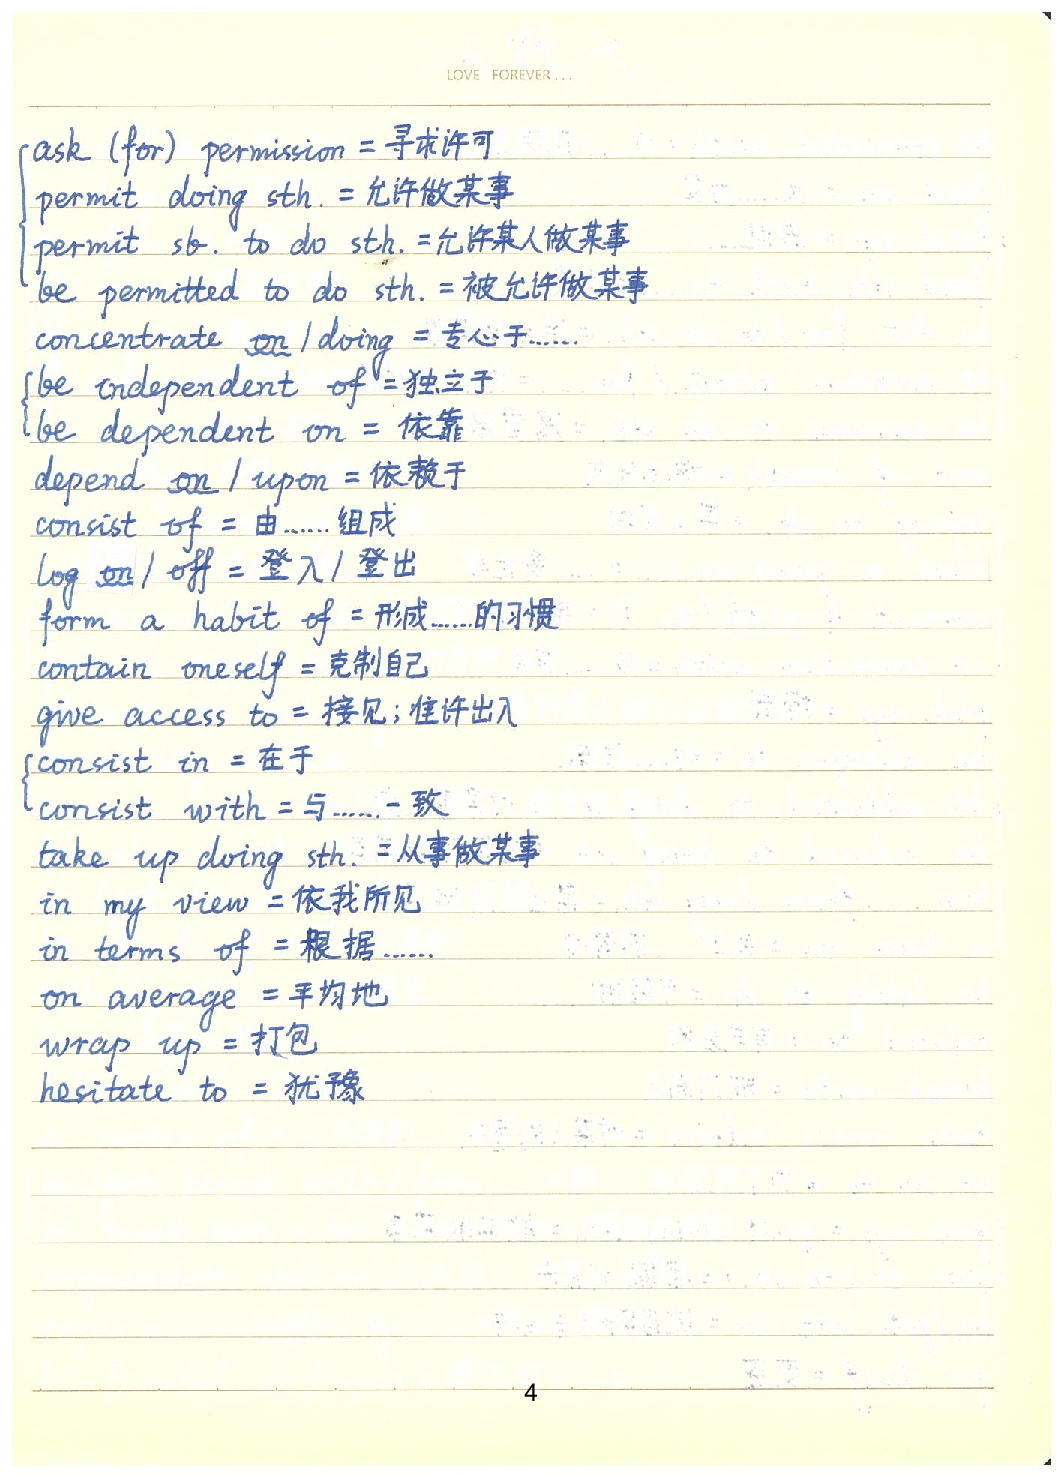 LOVE FOREVER...
ask (for) permission = 寻求许可
permit doing sth. = 允许做某事
permit sb. to do sth. = 允许某人做某事
be permitted to do sth. = 被允许做某事
concentrate on / doing = 专心于……
be independent of = 独立于
be dependent on = 依靠
depend on / upon = 依赖于
consist of = 由……组成
log on / off = 登入 / 登出
form a habit of = 形成……的习惯
contain oneself = 克制自己
give access to = 接见;准许出入
consist in = 在于
consist with = 与……一致
take up doing sth. = 从事做某事
in my view = 依我所见
in terms of = 根据……
on average = 平均地
wrap up = 打包
hesitate to = 犹豫
4